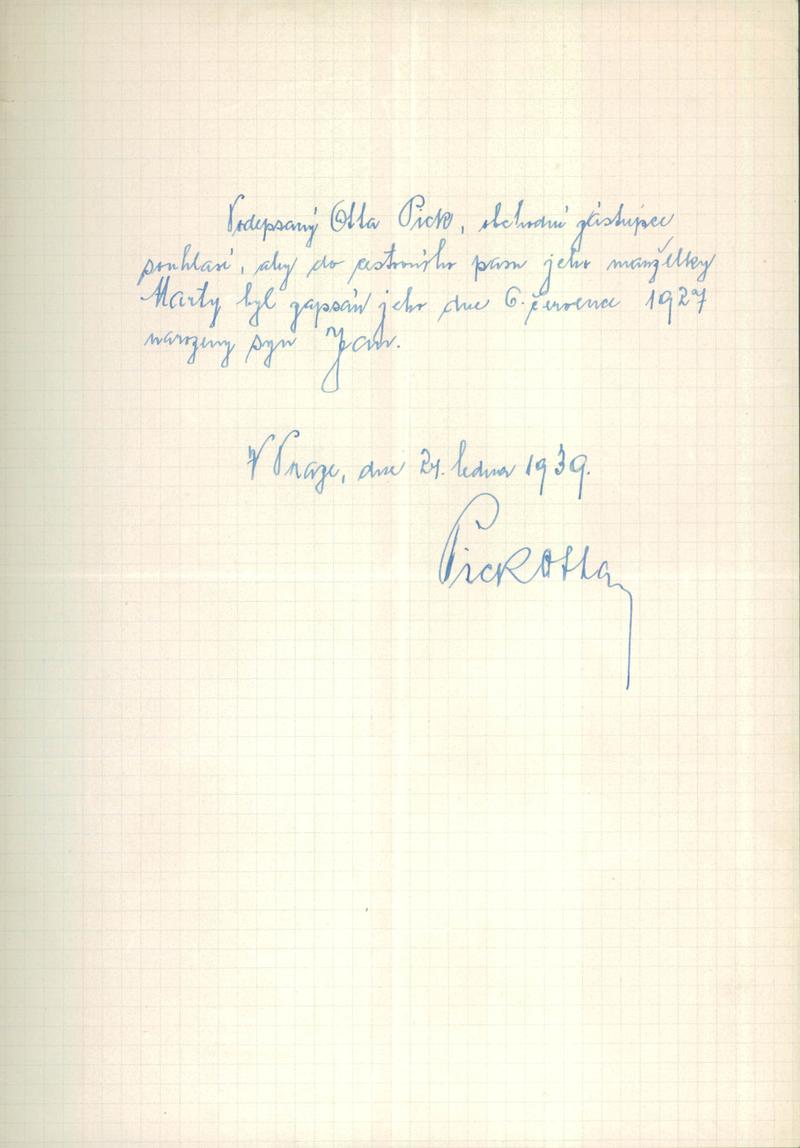 Podepsaný Otta Pick, obchodní zástupce
souhlasí, aby do cestovního pasu jeho manželky
Marty byl zapsán jeho dne 6. července 1927
narozený syn Jan.
V Praze, dne 24. ledna 1939.
Pick Otta